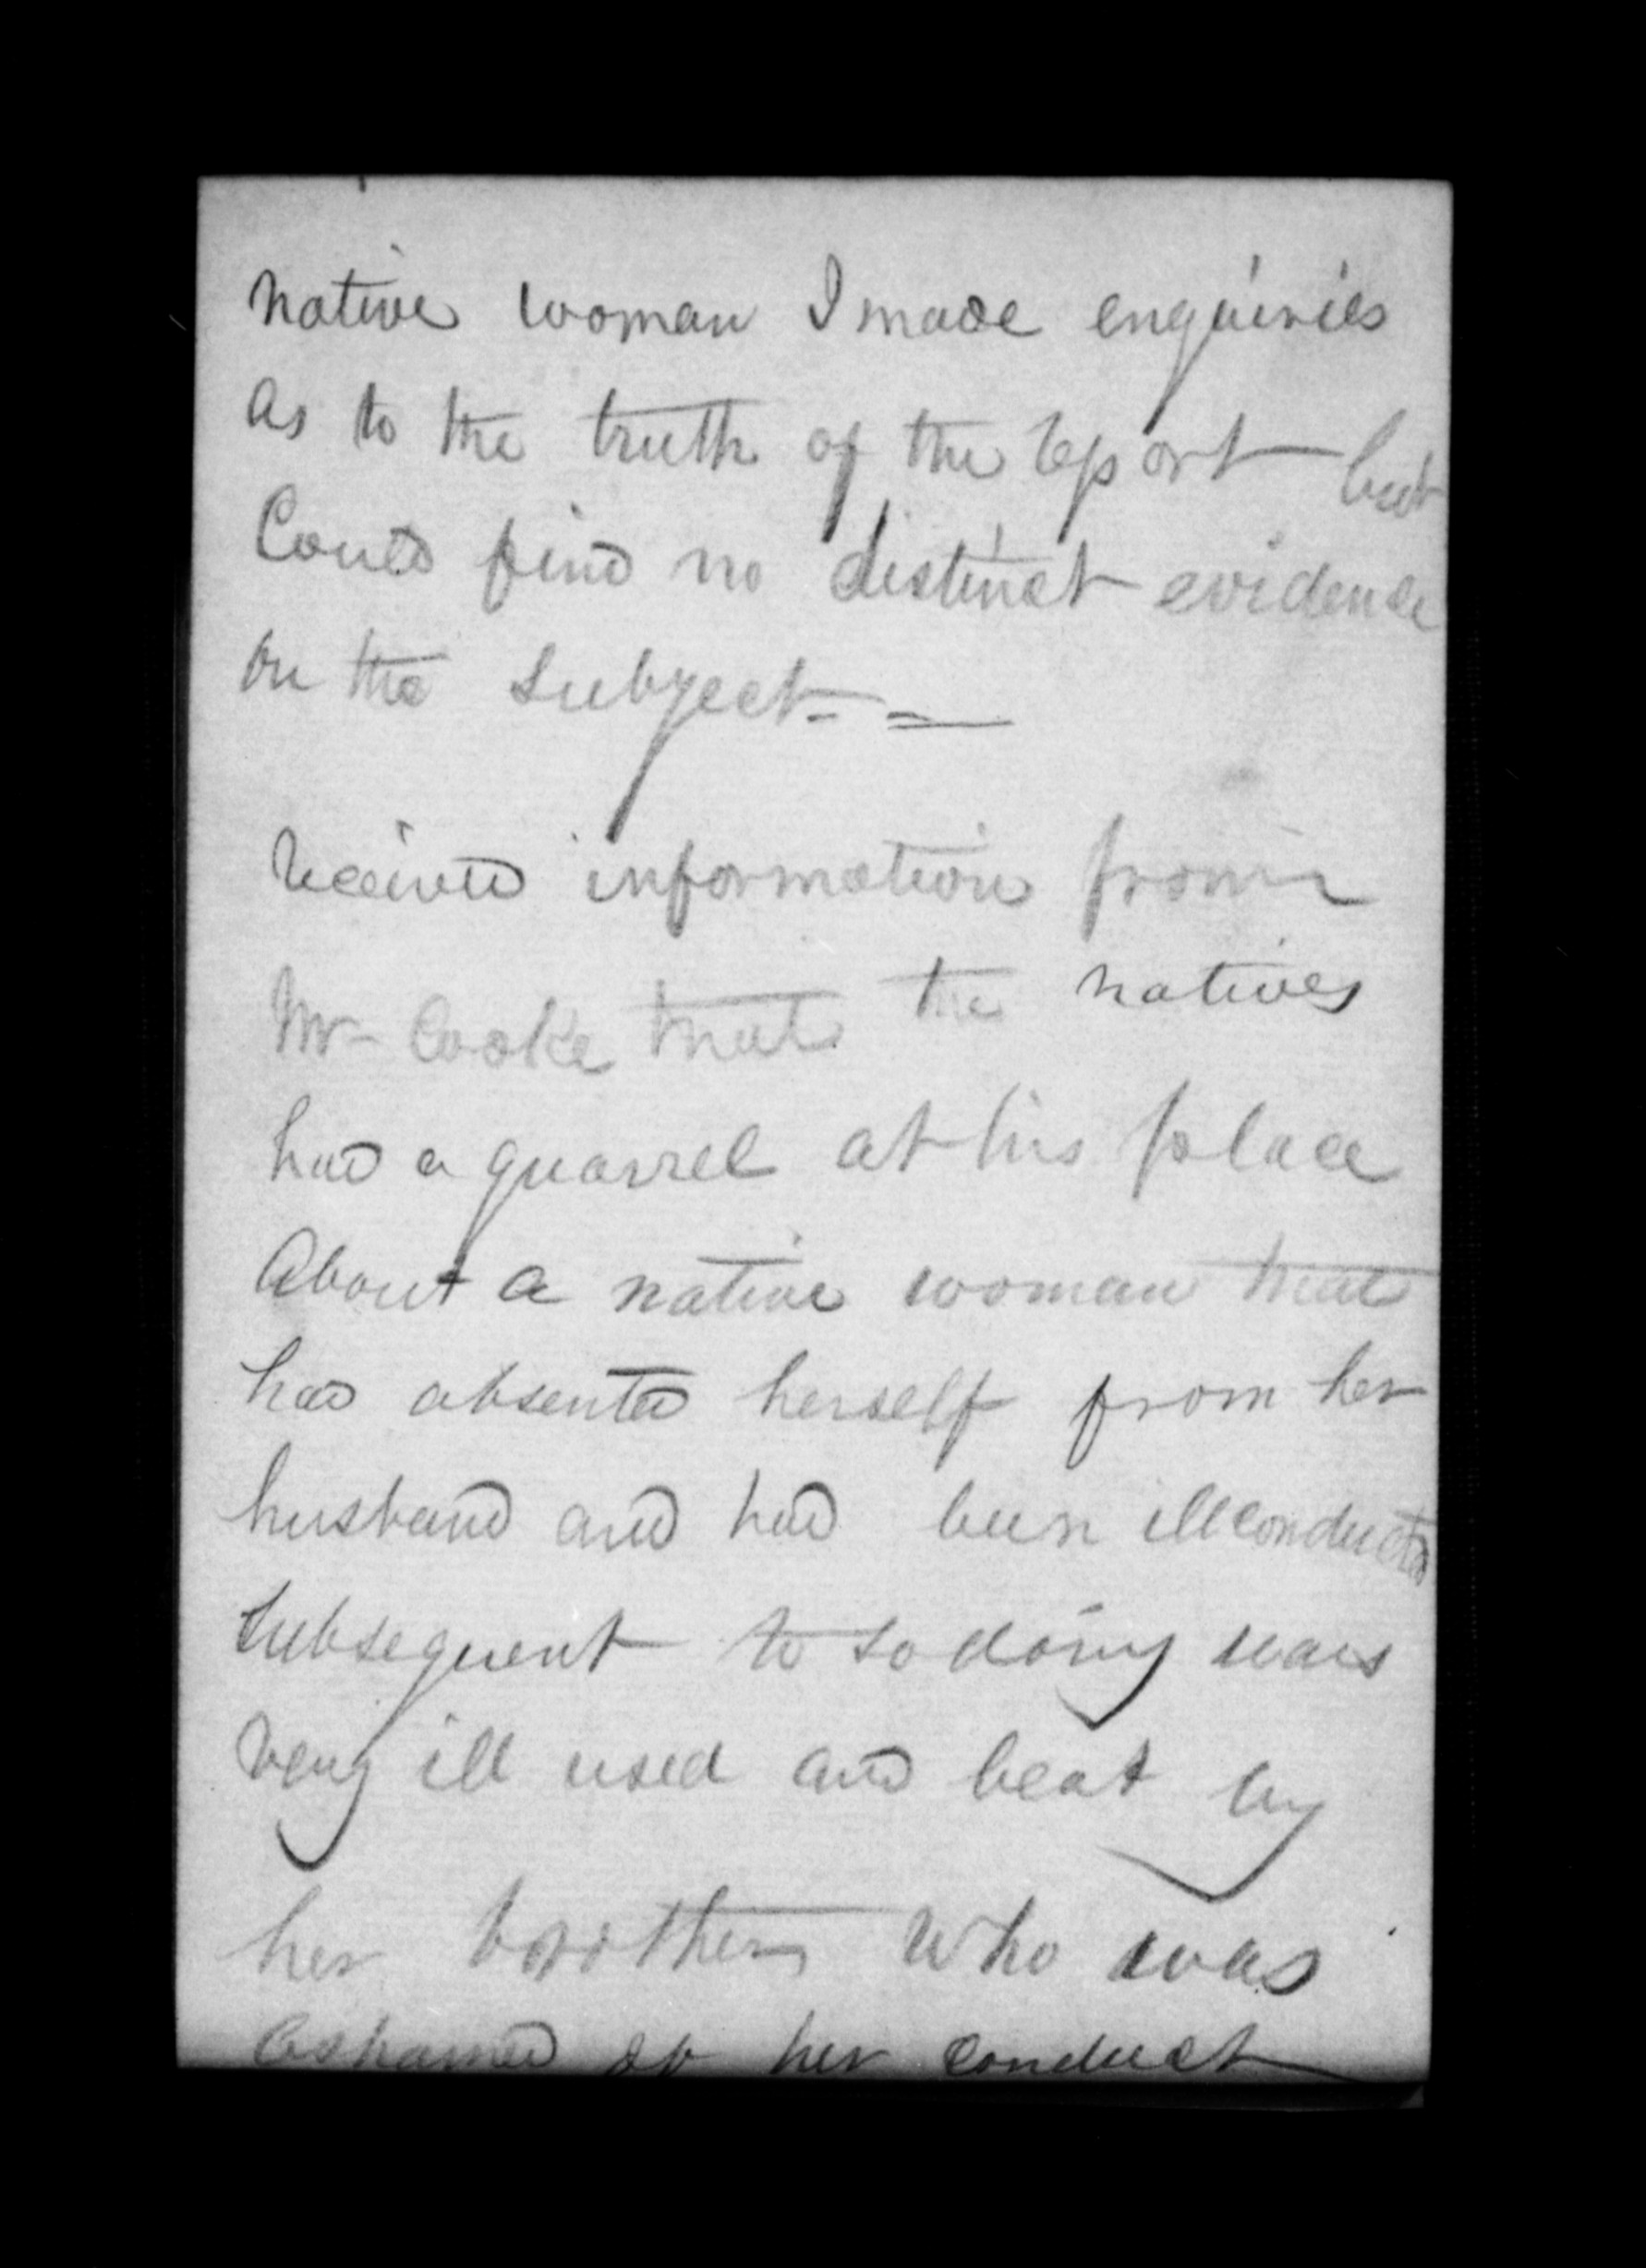 native woman I made enquiries
as to the truth of the report but
Could find no distinct evidence
on the subject - =
received information from
Mr Cooke that the natives
had a quarrel at his place
About a native woman that
had absented herself from her
husband and had been illconducted
subsequent to so doing was
very ill used and beat by
her brother who was
ashamed of her conduct